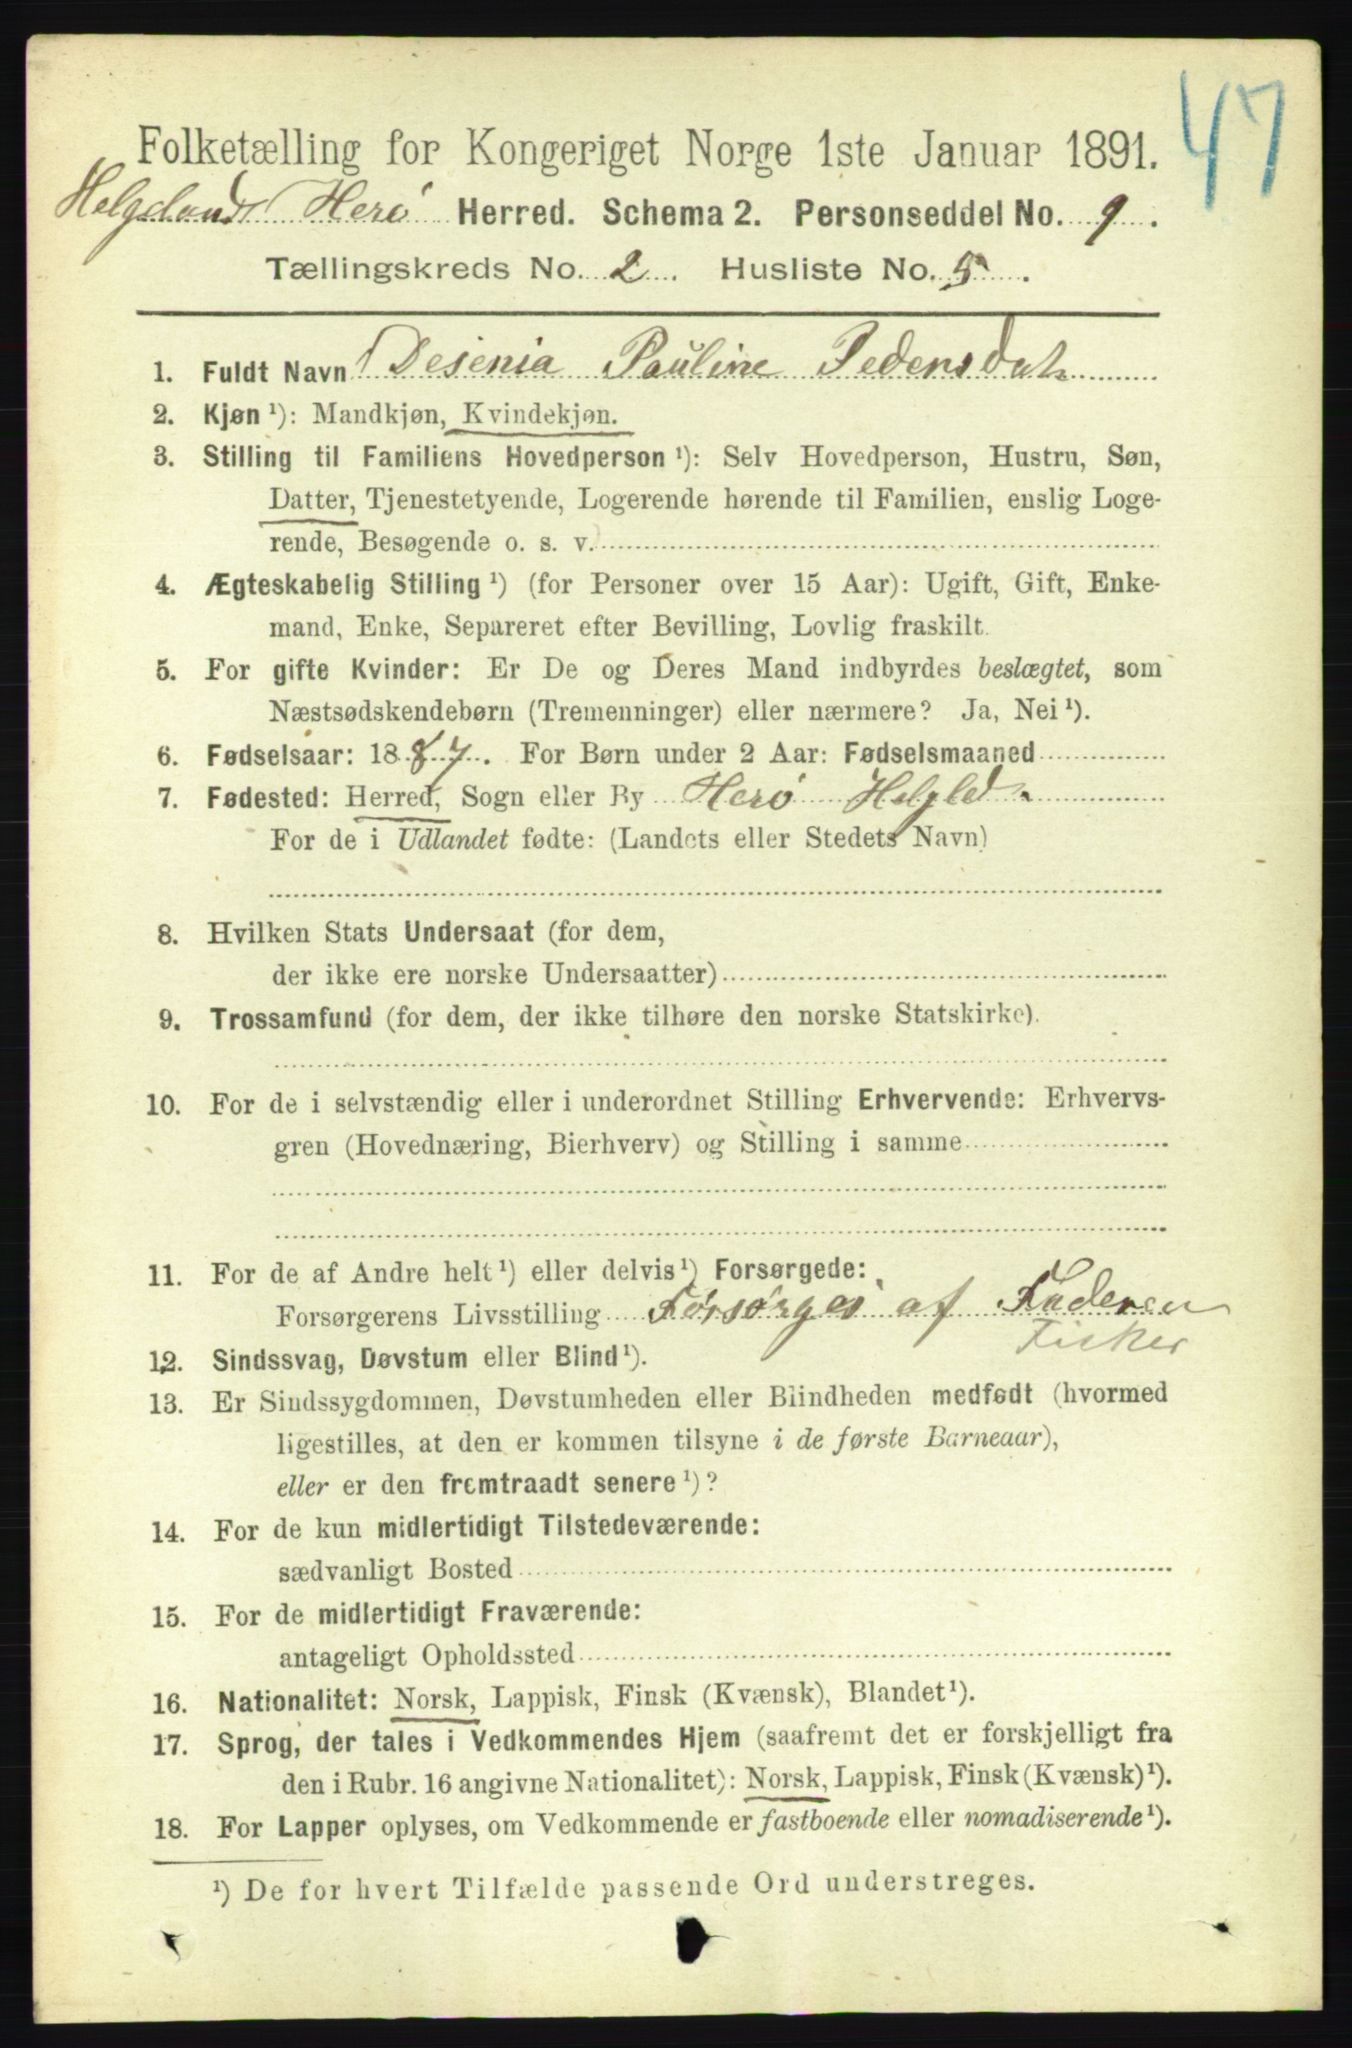 47
Folketælling for Kongeriget Norge 1ste Januar 1891.
Helgeland Herø Herred. Schema 2. Personseddel No. 9.
Tællingskreds No. 2. Husliste No. 5.
1. Fuldt Navn Desenia Pauline Pedersdat
2. Kjøn ¹): Mandkjøn, Kvindekjøn.
3. Stilling til Familiens Hovedperson ¹): Selv Hovedperson, Hustru, Søn,
Datter, Tjenestetyende, Logerende hørende til Familien, enslig Loge-
rende, Besøgende o. s. v.
4. Ægteskabelig Stilling ¹) (for Personer over 15 Aar): Ugift, Gift, Enke-
mand, Enke, Separeret efter Bevilling, Lovlig fraskilt.
5. For gifte Kvinder: Er De og Deres Mand indbyrdes beslægtet, som
Næstsødskendebørn (Tremenninger) eller nærmere? Ja, Nei ¹).
6. Fødselsaar: 1887. For Børn under 2 Aar: Fødselsmaaned
7. Fødested: Herred, Sogn eller By Herø Helgld.
For de i Udlandet fødte: (Landets eller Stedets Navn)
8. Hvilken Stats Undersaat (for dem,
der ikke ere norske Undersaatter)
9. Trossamfund (for dem, der ikke tilhøre den norske Statskirke).
10. For de i selvstændig eller i underordnet Stilling Erhvervende: Erhvervs-
gren (Hovednæring, Bierhverv) og Stilling i samme
11. For de af Andre helt ¹) eller delvis ¹) Forsørgede:
Forsørgerens Livsstilling Forsørges af Faderen
Fisker
12. Sindssvag, Døvstum eller Blind ¹).
13. Er Sindssygdommen, Døvstumheden eller Blindheden medfødt (hvormed
ligestilles, at den er kommen tilsyne i de første Barneaar),
eller er den fremtraadt senere ¹)?
14. For de kun midlertidigt Tilstedeværende:
sædvanligt Bosted
15. For de midlertidigt Fraværende:
antageligt Opholdssted
16. Nationalitet: Norsk, Lappisk, Finsk (Kvænsk), Blandet ¹).
17. Sprog, der tales i Vedkommendes Hjem (saafremt det er forskjelligt fra
den i Rubr. 16 angivne Nationalitet): Norsk, Lappisk, Finsk (Kvænsk) ¹).
18. For Lapper oplyses, om Vedkommende er fastboende eller nomadiserende ¹).
¹) De for hvert Tilfælde passende Ord understreges.